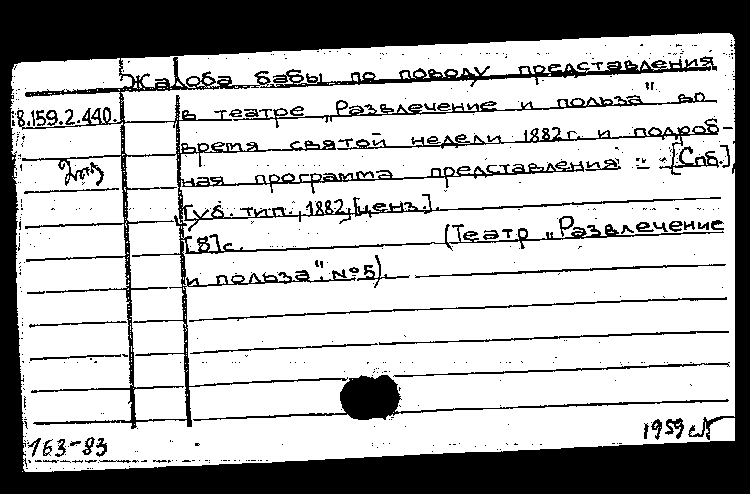 Жалоба бабы по поводу представления
18.159.2.440. в театре „Развлечение и польза" во
время святой недели 1882 г. и подроб-
2 экз ная программа представления - - [Спб.],
[уб. тип., 1882, [ценз.].
[8] с. (Театр „Развлечение
и польза". № 5).
163-83
1959